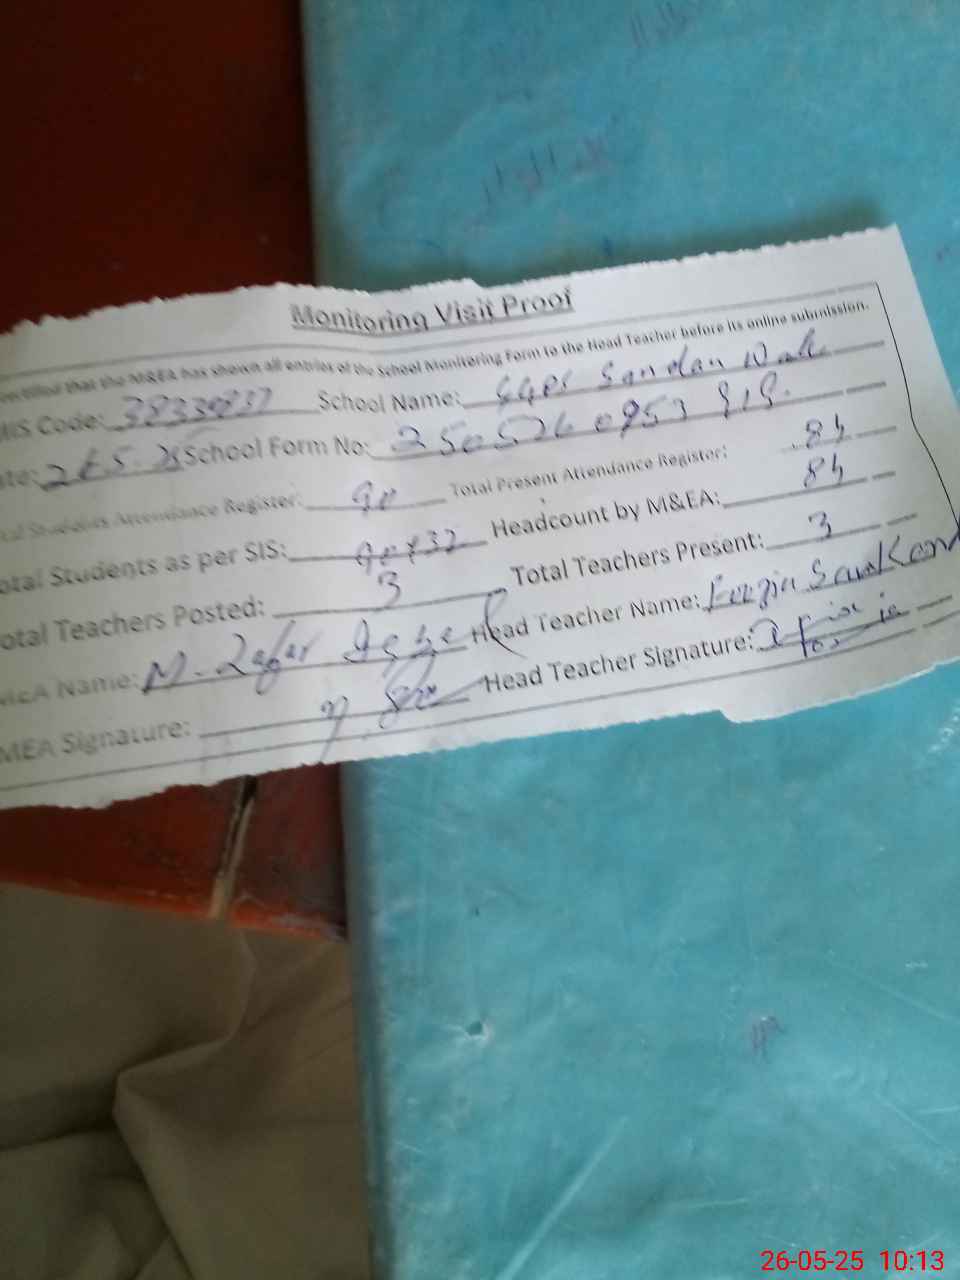 Monitoring Visit Proof
that the M&EA has shown all entries of the School Monitoring Form to the Head Teacher before its online submission.
MIS Code: 38330837 School Name: GGPS Sandan Wali
ate: 26.5.25 School Form No: 250526 0953 919.
tal Students Attendance Register: 90 Total Present Attendance Register: 84
otal Students as per SIS: 90+32 Headcount by M&EA: 84
otal Teachers Posted: 3 Total Teachers Present: 3
Name: M. Zafar Iqbal Head Teacher Name: Fouzia
MEA Signature: Head Teacher Signature:
26-05-25 10:13